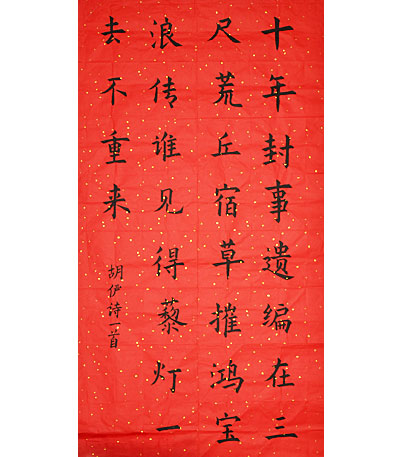 十年封事遗编在三
尺荒丘宿草摧鸿宝
浪传谁见得藜灯一
去不重来
胡俨诗一首